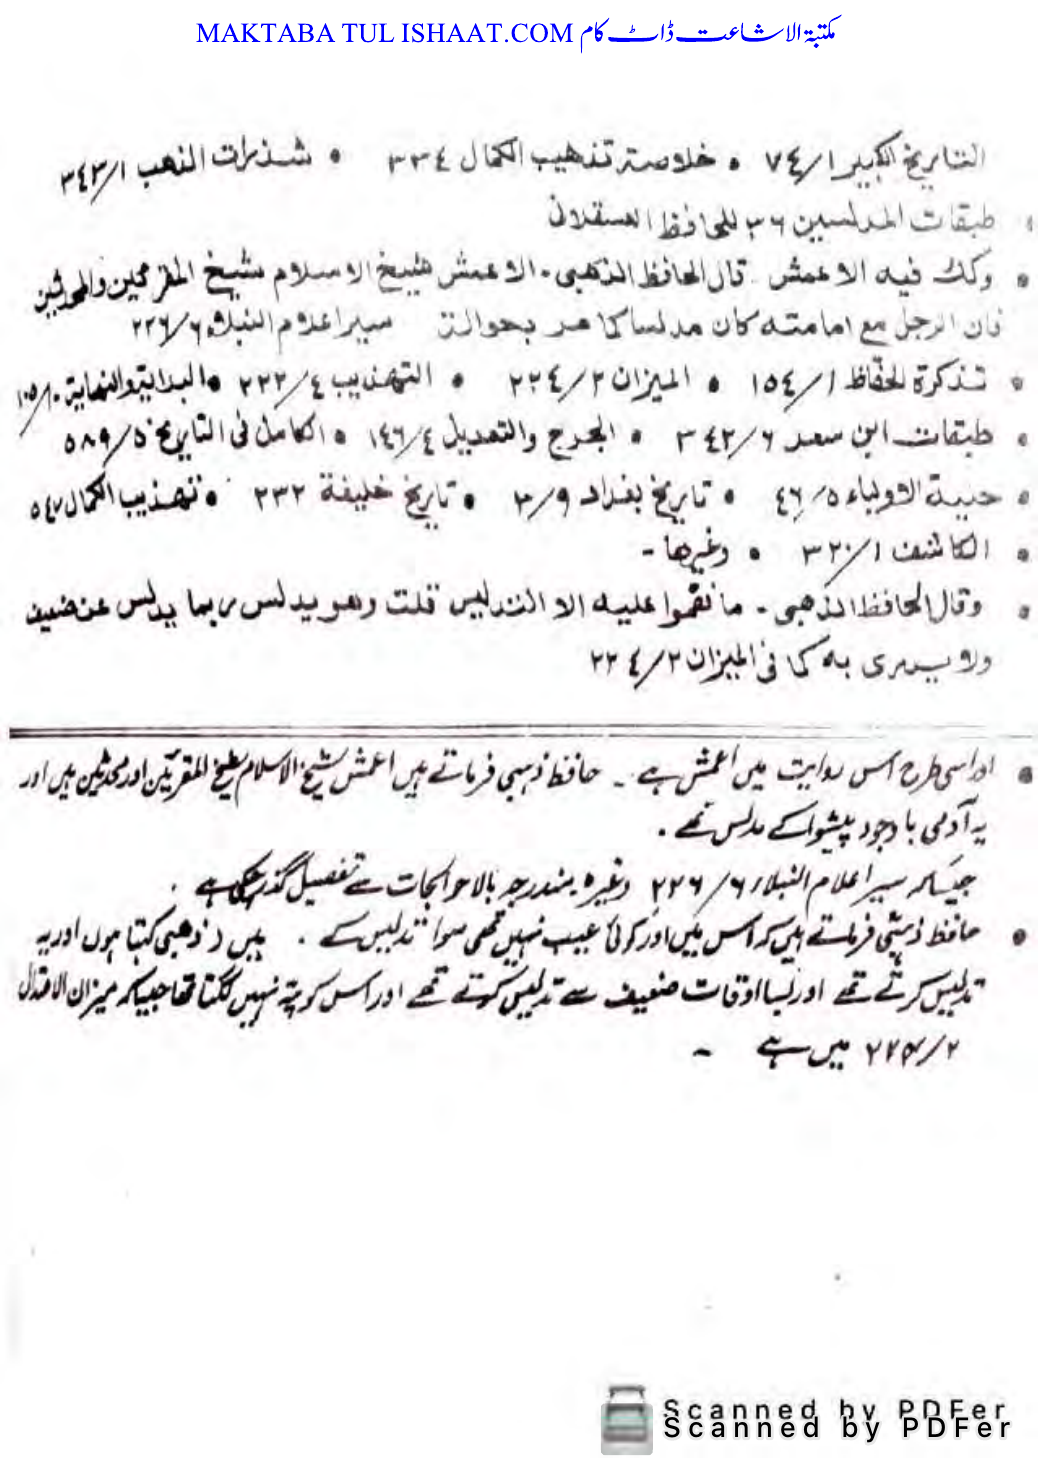 MAKTABA TUL ISHAAT.COM مکتبۃ الاشاعت ڈاٹ کام
التاريخ الكبير ۷٤/۱ • خلاصة تذهيب الكمال ۳۳٤ • شذرات الذهب ۳٤۳/۱
• طبقات المدلسين ۳٦ للحافظ العسقلانی
• وكذا فيه الاعمش ۔ قال الحافظ الذهبی ۔ الاعمش شيخ الاسلام شيخ المقرئين والمحدثين
فان الرجل مع امامته كان مدلسا كما مر بحوالة سير اعلام النبلاء ٢٢٦/٦
• تذكرة الحفاظ ۱٥٤/۱ • الميزان ۲۲٤/۲ • التهذيب ۲۲۲/٤ • البداية والنهاية ۱۰٥/۱۰
• طبقات ابن سعد ۳٤۲/٦ • الجرح والتعديل ۱٤٦/٤ • الكامل فی التاريخ ٥۸۹/٥
• حلية الاولياء ٤٦/٥ • تاريخ بغداد ۳/۹ • تاريخ خليفة ۲۳۲ • تهذيب الكمال ٥٤٧
• الكاشف ۳۲۰/۱ • وغيرها ۔
• وقال الحافظ الذهبی ۔ ما نقموا عليه الا التدليس قلت وهو يدلس ربما يدلس عن ضعيف
ولا يدری به كما فی الميزان ۲۲٤/۲
• اور اسی طرح اس روایت میں اعمش ہے ۔ حافظ ذہبی فرماتے ہیں اعمش شیخ الاسلام شیخ المقرئین اور محدثین ہیں اور
یہ آدمی باوجود پیشوا کے مدلس تھے ۔
جیسا کہ سیر اعلام النبلاء ۲۲٦/٦ وغیرہ مندرجہ بالا حوالجات سے تفصیل گذر چکی ہے ۔
• حافظ ذہبی فرماتے ہیں کہ اس میں اور کوئی عیب نہیں تھی سوا تدلیس کے ۔ میں (ذھبی) کہتا ہوں اور یہ
تدلیس کرتے تھے اور بسا اوقات ضعیف سے تدلیس کرتے تھے اور اس کو پتہ نہیں لگتا تھا جیسا کہ میزان الاعتدال
۲۲۴/۲ میں ہے ۔
Scanned by PDFer
Scanned by PDFer